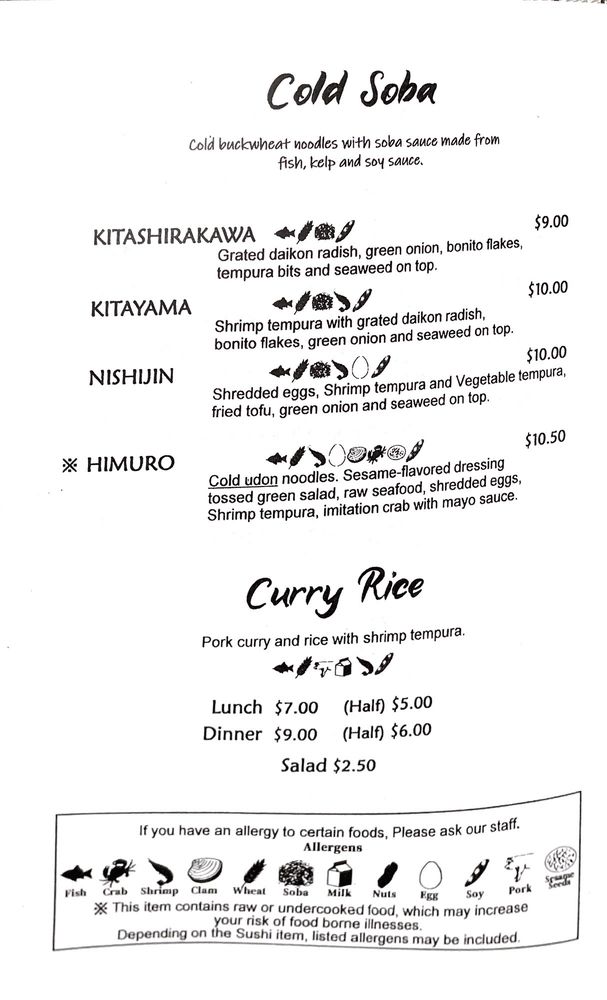 Cold Soba
Cold buckwheat noodles with soba sauce made from
fish, kelp and soy sauce.
KITASHIRAKAWA $9.00
Grated daikon radish, green onion, bonito flakes,
tempura bits and seaweed on top.
KITAYAMA $10.00
Shrimp tempura with grated daikon radish,
bonito flakes, green onion and seaweed on top.
NISHIJIN $10.00
Shredded eggs, Shrimp tempura and Vegetable tempura,
fried tofu, green onion and seaweed on top.
※ HIMURO $10.50
Cold udon noodles. Sesame-flavored dressing
tossed green salad, raw seafood, shredded eggs,
Shrimp tempura, imitation crab with mayo sauce.
Curry Rice
Pork curry and rice with shrimp tempura.
Lunch $7.00 (Half) $5.00
Dinner $9.00 (Half) $6.00
Salad $2.50
If you have an allergy to certain foods, Please ask our staff.
Allergens
Fish Crab Shrimp Clam Wheat Soba Milk Nuts Egg Soy Pork Sesame Seeds
※ This item contains raw or undercooked food, which may increase
your risk of food borne illnesses.
Depending on the Sushi item, listed allergens may be included.